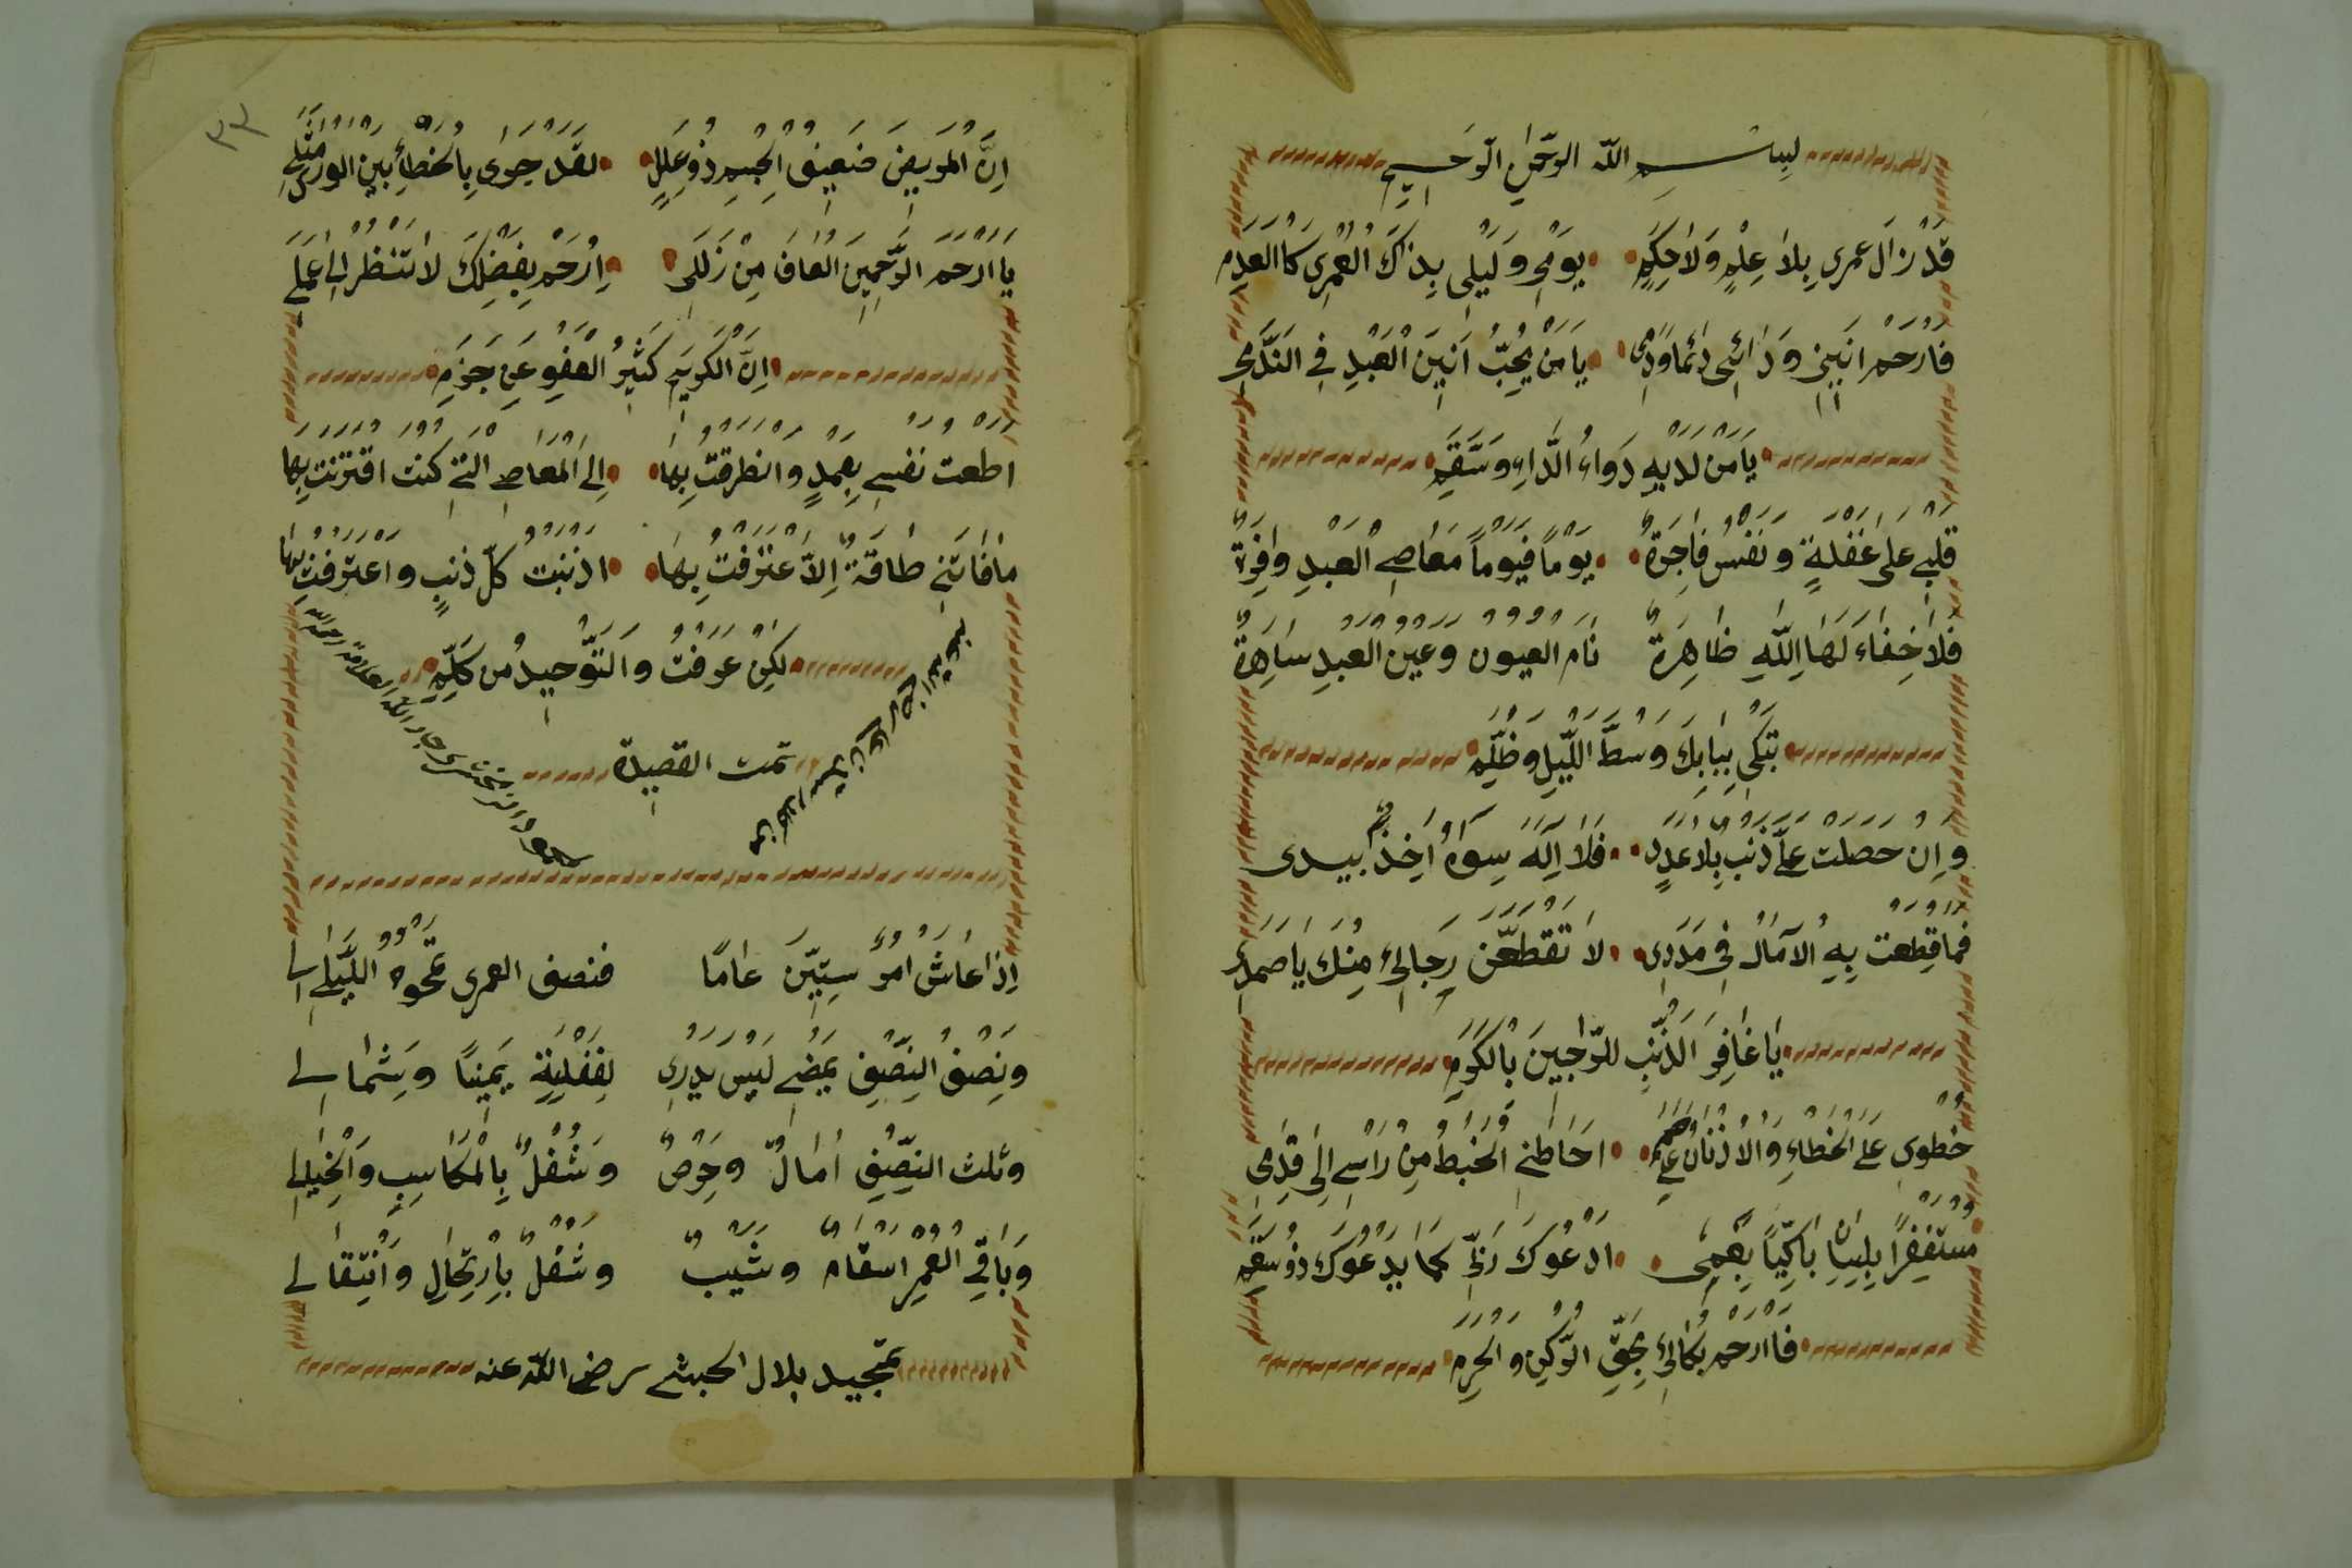 بسم الله الرحمن الرحيم
قَدْ زَالَ عمري بِلَا عِلْمٍ وَلَا حِكَمِ يَوْمِي وَلَيْلِي بِذَاكَ الْعُمْرِي كَا الْعَدَمِ
فَارْحَم انَيني وَدَائي دَئماً وَدَمي يَا مَنْ يُحِبُّ اَنِينَ الْعَبْدِ فِي النَّدَمِي
يَا مَنْ لَدَيْهِ دَوَاءُ الدَّاءِ وَسَّقَمِ
قَلْبِي عَلَى غَفْلَةٍ وَنَفْسُ فَاجِرَةٌ يَوْماً فَيَوْماً مَعَاصِي الْعَبْدِ وَافِرَةٌ
فَلَا خِفَاءَ لَهَا اللّٰهِ ظَاهِرَةٌ نَامَ الْعُيُونُ وَعَيْنُ الْعَبْدِ سَاهِرَةٌ
تَبْكِي بِبَابِكَ وَسْطَ اللَّيْلِ وَظُّلَمِ
وَاِنْ حَصَلَتْ عَلَى ذَنْبٍ بِلَا عَدَدٍ فَلَا اِلَهَ سِوَاهُ اٰخِذٌ بيدى
فَمَا قُطِعَتْ بِهِ الْآمَالُ فِي مَدَدِي لَا تَقْطَعَنَّ رَجَالِئ مِنْكَ يَا صَمَدِي
يَا غَافِرَ الذَّنْبِ للرَّاجِينَ بِالْكَرَمِ
خُطْوَى عَلَى الْخَطَاءِ وَالْاُذْنَانُ اَحَاطَنِي الْخَبْطُ مِنْ رَاْسِي اِلَى قَدَمِي
مُسْتَغْفِرًا بَاكِيًّا بِفَمِي ادْعُوكَ رَبِّي كَمَا يَدْعُوكَ ذُو سَقَمِ
فَا ارْحَمْ بُكَالِئ بِحَقِّ الرُّكْنِ وَالْحَرَمِ
٣٣
اِنَّ الْمَرِيضَ ضَعِيفُ الْجِسْمِ ذُو عِلَلٍ لَقَدْ جَرَى بِالْخَطَاءِ بَيْنَ الْوَرَى
يَا ارْحَمَ الرَّحِمِينَ الْعَافَ مِنْ زَلَلِي اِرْحَمْ بِفَضْلِكَ لَا تَنْظُرْ اِلَى عَمَلِي
اِنَّ الْكَرِيمَ كَثِيرُ الْعَفْوِ عَنْ جَرَمِ
اَطَعْتُ نَفْسِي بِعَمْدٍ وَانْطَرَقْتُ بِهَا اِلَى الْمَعَاصِي الَّتِي كُنْتُ اقْتَرَنْتُ بِهَا
مَا فَاتَنِي طَاقَةٌ اِلَّا عْتَرَفْتُ بِهَا اَذْنَبْتُ كُلَّ ذَنْبٍ وَاعْتَرَفْتُ بِهَا
لَكِنْ عَرَفْتُ وَالتَّوْحِيدُ مِنْ كَلِمِ
تمت القصيدة
اِذَا عَاشَ امْرٌ سِتِّينَ عَامًا فنصف العمرى تمحوه اللَّيَالِى
وَنِصْفُ النِّصْفِ يَمْضِي لَيْسَ يَدْرِي لِغَفْلَتِهِ يَمِينًا وَشِمَالى
وَثلث النِّصْفِ اٰمَالٌ وَحِرْصٌ وَشُغْلٌ بِالْمَكَاسِبِ وَالْخِيَالى
وَبَاقِي الْعُمْرِ اسْقَامٌ وَشَيْبٌ وَشُغْلٌ بِارْتِحَالٍ وَانْتِقَالى
تمجيد بلال الحبشي رضى الله عنه